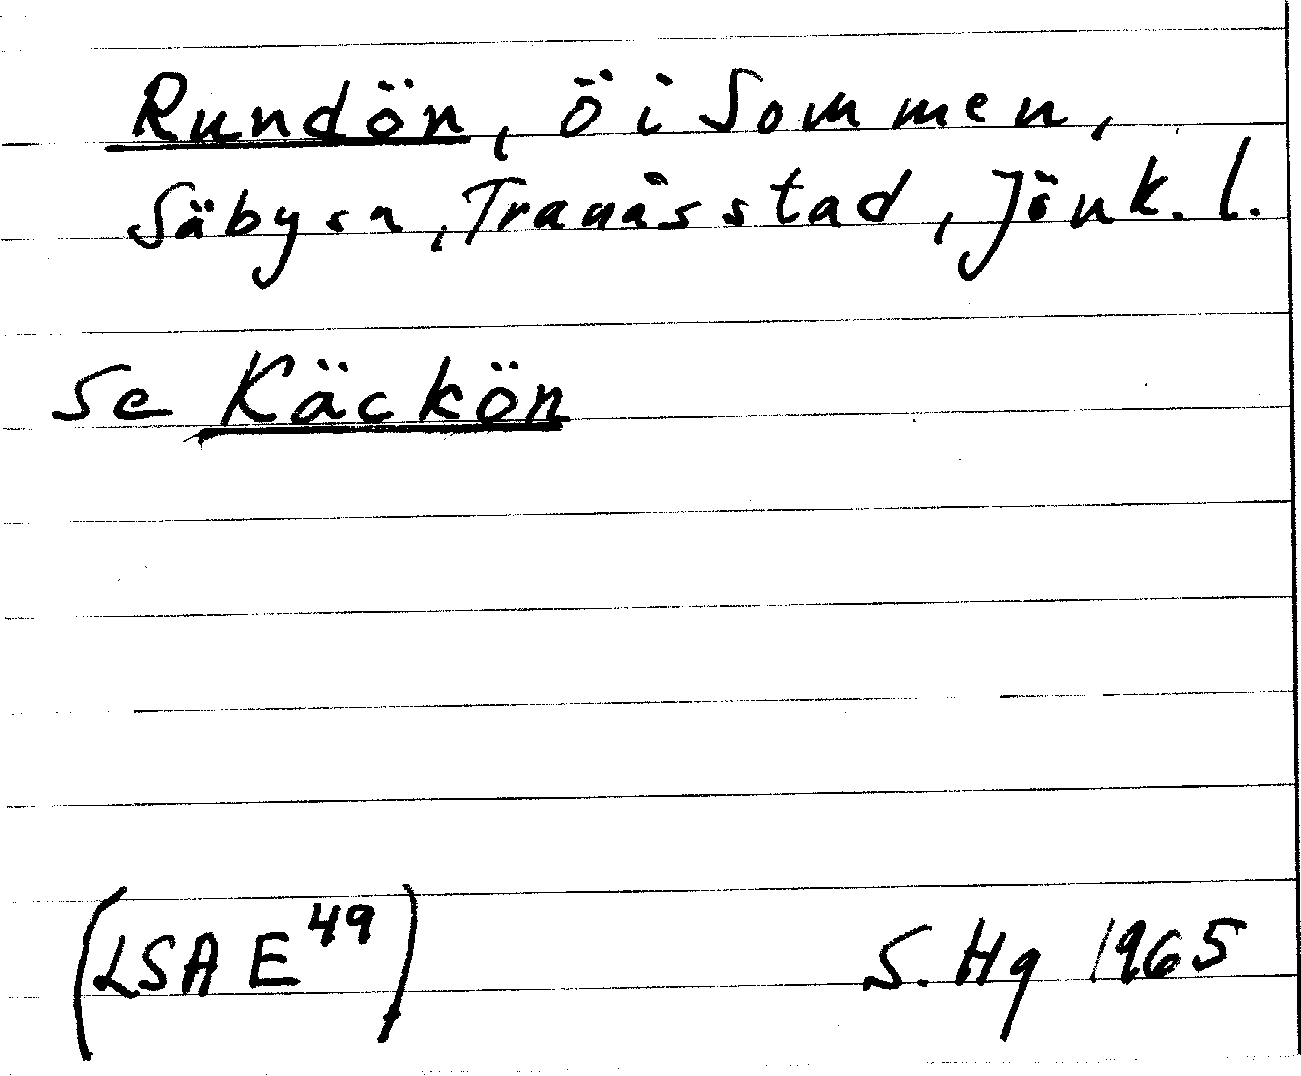 Rundön, ö i Sommen,
Säby sn, Tranås stad, Jönk. l.
Se Käckön
(LSA E 49) S. Hg 1965